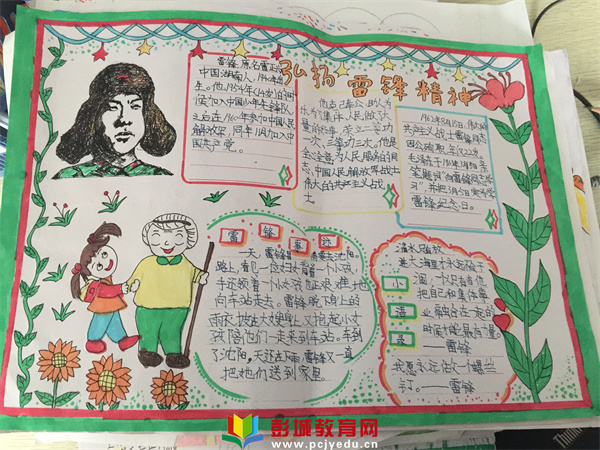 弘扬雷锋精神
雷锋 原名雷正兴
中国湖南人，1940年出
生。他1954年(14岁)的时
候加入中国少年先锋队
之后在1960年参加中国人民
解放军，同年11月加入中
国共产党。
为乐
一次，三等功二次。他是
全心全意为人民服务的楷
模，中国人民解放军战士
伟大的共产主义战
士
1962年8月15日，伟大的
共产主义战士雷锋同志
因公殉职，年仅22岁。
毛泽东于1963年3月5日亲
笔题词"向雷锋同志学
习"，并把3月5日定为学
雷锋纪念日。
雷锋事迹
一天，雷锋冒雨要去沈阳，
路上，看见一位妇女背着一个小孩，
手还领着一个小女孩也正艰难地
向车站走去。雷锋脱下身上的
雨衣，披在大嫂身上，又抱起小女
孩陪他们一走来到车站。车到
了沈阳，天还在下雨，雷锋又一直
把她们送到家里。
小语录
滴水只有放
进大海里才永远不会干
涸，一个人只有当他
把自己和集体事
业融合在一起的
时候才能最有力量。
——雷锋
我愿永远做一个螺丝
钉。——雷锋
彭城教育网
www.pcjyedu.cn